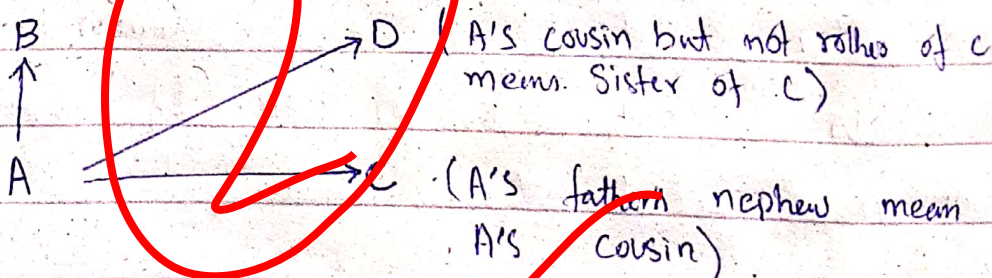 B D ( A's cousin but not rother of c
means. Sister of .C)
A C (A's father nephew mean
A's cousin)